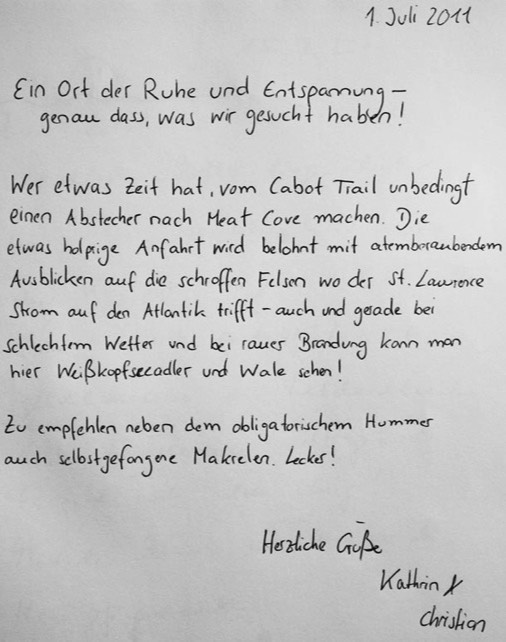 1. Juli 2011
Ein Ort der Ruhe und Entspannung –
genau dass, was wir gesucht haben!
Wer etwas Zeit hat, vom Cabot Trail unbedingt
einen Abstecher nach Meat Cove machen. Die
etwas holprige Anfahrt wird belohnt mit atemberaubendem
Ausblicken auf die schroffen Felsen wo der St. Lawrence
Strom auf den Atlantik trifft – auch und gerade bei
schlechtem Wetter und bei rauer Brandung kann man
hier Weißkopfseeadler und Wale sehen!
Zu empfehlen neben dem obligatorischem Hummer
auch selbstgefangene Makrelen. Lecker!
Herzliche Grüße
Kathrin &
Christian